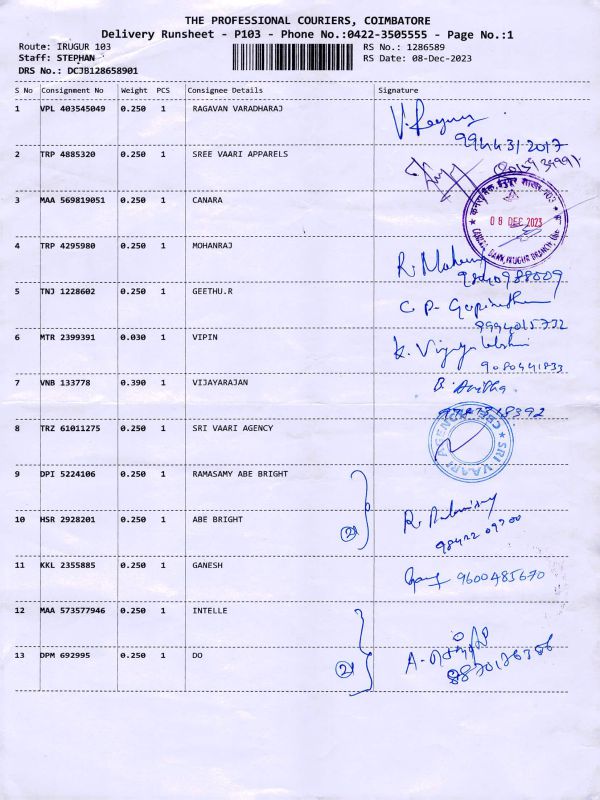 THE PROFESSIONAL COURIERS, COIMBATORE
Delivery Runsheet - P103 - Phone No.:0422-3505555 - Page No.:1
Route: IRUGUR 103
Staff: STEPHAN
DRS No.: DCJB128658901
RS No.: 1286589
RS Date: 08-Dec-2023
S No Consignment No Weight PCS Consignee Details Signature
1 VPL 403545049 0.250 1 RAGAVAN VARADHARAJ
9944312017
2 TRP 4885320 0.250 1 SREE VAARI APPARELS
3 MAA 569819051 0.250 1 CANARA
08 DEC 2023
CANARA BANK, IRUGUR BRANCH
4 TRP 4295980 0.250 1 MOHANRAJ
R.
5 TNJ 1228602 0.250 1 GEETHU.R
C. P. Gopinathan
9994015732
6 MTR 2399391 0.030 1 VIPIN
K. Vijayalakshmi
9080441833
7 VNB 133778 0.390 1 VIJAYARAJAN
8 TRZ 61011275 0.250 1 SRI VAARI AGENCY
SRI VAARI AGENCY
9 DPI 5224106 0.250 1 RAMASAMY ABE BRIGHT
10 HSR 2928201 0.250 1 ABE BRIGHT
2
98422 09700
11 KKL 2355885 0.250 1 GANESH
9600485670
12 MAA 573577946 0.250 1 INTELLE
13 DPM 692995 0.250 1 DO
2